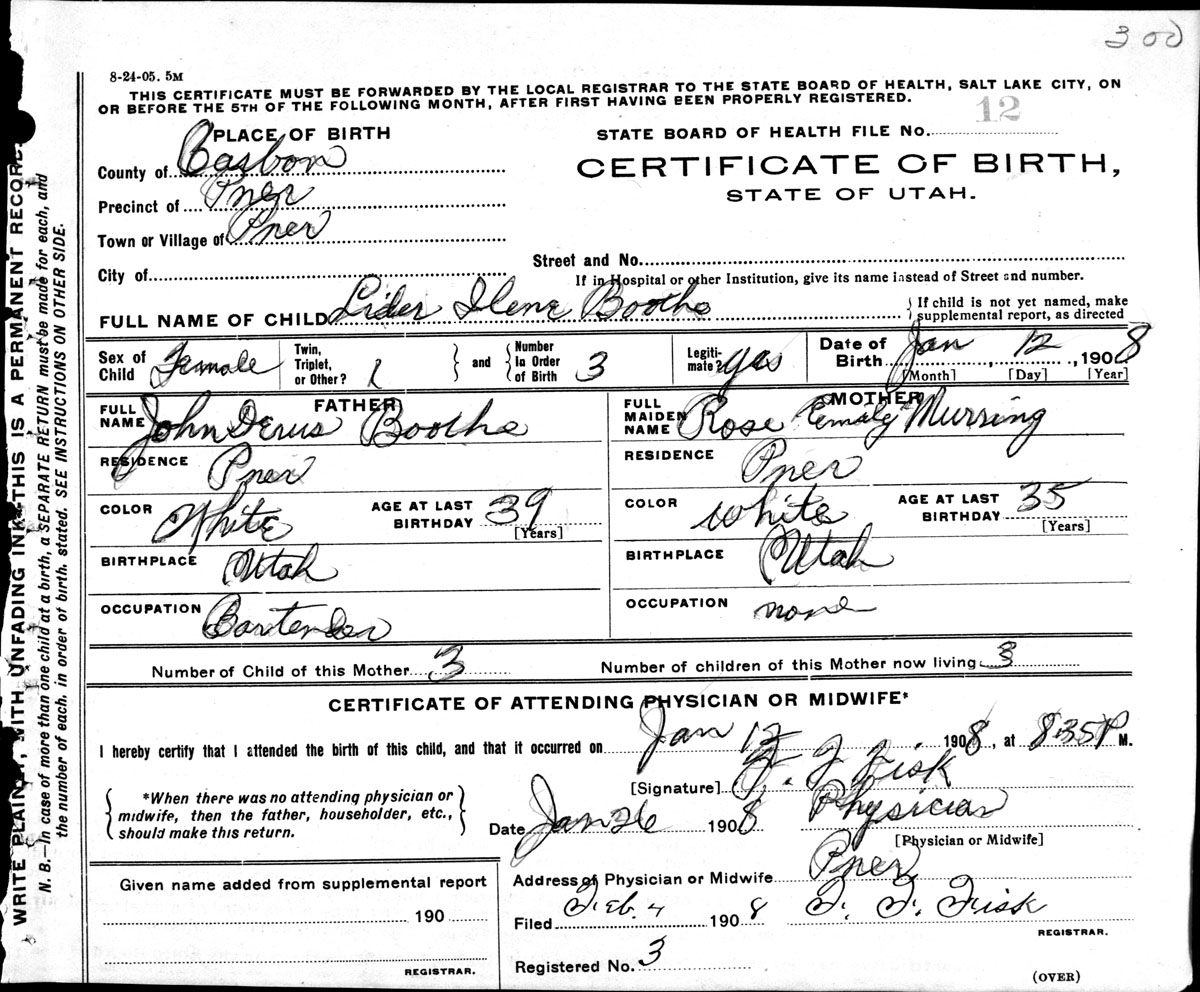 300
8-24-05. 5M
THIS CERTIFICATE MUST BE FORWARDED BY THE LOCAL REGISTRAR TO THE STATE BOARD OF HEALTH, SALT LAKE CITY, ON
OR BEFORE THE 5TH OF THE FOLLOWING MONTH, AFTER FIRST HAVING BEEN PROPERLY REGISTERED.
WRITE PLAINLY, WITH UNFADING INK—THIS IS A PERMANENT RECORD.
N. B.—In case of more than one child at a birth, a SEPARATE RETURN must be made for each, and
the number of each, in order of birth, stated. SEE INSTRUCTIONS ON OTHER SIDE.
PLACE OF BIRTH
STATE BOARD OF HEALTH FILE No. 12
County of Carbon
CERTIFICATE OF BIRTH,
STATE OF UTAH.
Precinct of
Town or Village of
City of
Street and No.
If in Hospital or other Institution, give its name instead of Street and number.
FULL NAME OF CHILD Ilene Boothe
If child is not yet named, make
supplemental report, as directed
Sex of Child Female Twin, Triplet, or Other? 1 and Number In Order of Birth 3 Legiti- mate? yes Date of Birth Jan 12, 1908
[Month] [Day] [Year]
FATHER
FULL NAME John Boothe
MOTHER
FULL MAIDEN NAME Rose
RESIDENCE
RESIDENCE
COLOR White AGE AT LAST BIRTHDAY 39 [Years]
COLOR White AGE AT LAST BIRTHDAY 35 [Years]
BIRTHPLACE Utah
BIRTHPLACE Utah
OCCUPATION Bartender
OCCUPATION none
Number of Child of this Mother 3 Number of children of this Mother now living 3
CERTIFICATE OF ATTENDING PHYSICIAN OR MIDWIFE*
I hereby certify that I attended the birth of this child, and that it occurred on Jan 12, 1908, at 835 P M.
*When there was no attending physician or
midwife, then the father, householder, etc.,
should make this return.
[Signature] Fisk
Date Jan 26 1908 Physician
[Physician or Midwife]
Given name added from supplemental report
190
REGISTRAR.
Address of Physician or Midwife
Filed Feb. 4 1908 Fisk
REGISTRAR.
Registered No. 3
(OVER)